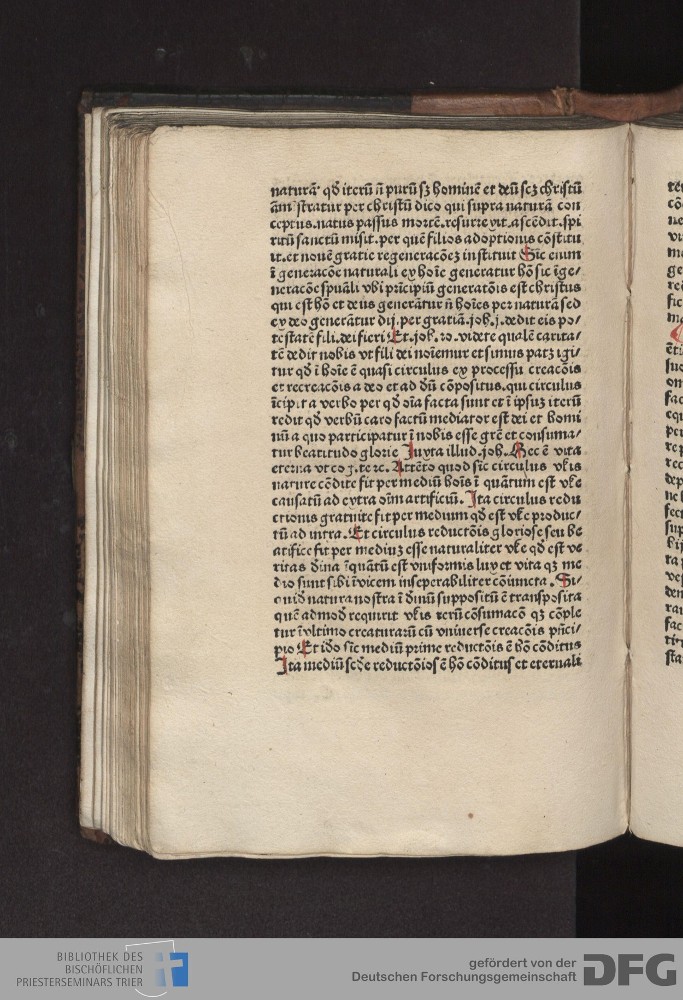 naturā qd iterū n̄ purū sꝫ hominē et deū scꝫ christū
ām istratur per christū dico qui supra naturā con
ceptus.natus passus mortē.resurrexit.ascēdit.spi
ritū sanctū misit.per quē filios adoptionis cōstitu
it.et nouē gratie regeneracōeꝫ instituit Sic enim
ī generacōe naturali ex hoīe generatur hō sic ī ge/
neracōe spūali vbi prīcipiū generatōis est christus
qui est hō et deus generātur n̄ hoīes per naturā sed
ex deo generātur dij.per gratiā.joh.j.dedit eis po/
testatē fili.dei fieri Et.joh.20.videte qualē carita/
tē dedit nobis vt fili dei noīemur et simus patꝫ igi/
tur qd ī hoīe ē quasi circulus ex processu creacōis
et recreacōis a deo et ad dn̄ cōpositus.qui circulus
īcipit a verbo per qd oīa facta sunt et ī ipsuꝫ iterū
redit qd verbū caro factū mediator est dei et homi
nū a quo participatur ī nobis esse grē et consuma/
tur beatitudo glorie Juxta illud.joh.Hec ē vita
eterna vt cog.te ꝛc. Attēto quod sic circulus vl̄is
nature cōdite fit per mediū hoīs ī quātum est vl̄e
causatū ad extra oīm artificiū. Ita circulus redu
ctionis gratuite fit per medium qd est vl̄e produc/
tū ad intra. Et circulus reductōis gloriose seu be
atifice fit per mediuꝫ esse naturaliter vl̄e qd est ve
ritas dīna īquātū est vniformis lux et vita qꝫ me
dio sunt sibi īvicem inseperabiliter cōiuncta. Si
quid natura nostra ī dīnū suppositū ē transposita
quē admod requirit vl̄is rerū cōsumacō qꝫ cōple
tur ī vltimo creaturarū cū vniuerse creacōis prīci/
pio Et ido sic mediū prime reductōis ē hō cōditus
Ita mediū scde reductōis ē hō cōditus et eternali
BIBLIOTHEK DES
BISCHÖFLICHEN
PRIESTERSEMINARS TRIER
gefördert von der
Deutschen Forschungsgemeinschaft
DFG